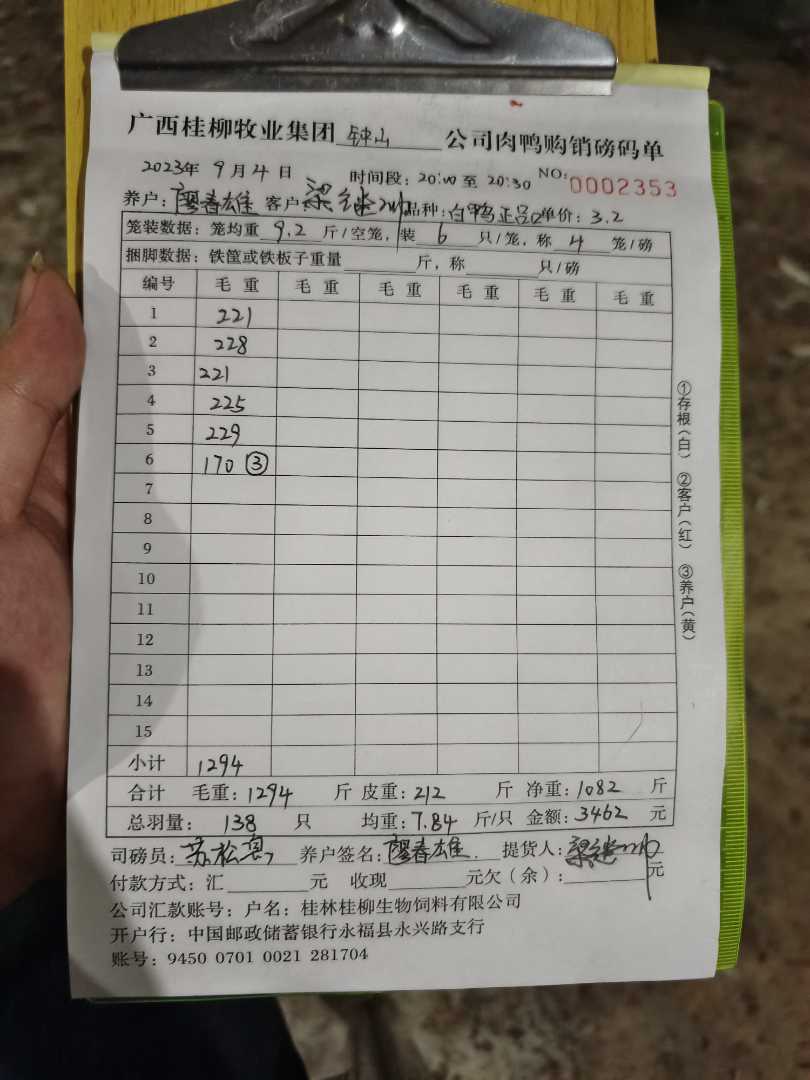 广西桂柳牧业集团 钟山 公司肉鸭购销磅码单
2023年 9月 4日 时间段: 20:00 至 20:30 NO: 0002353
养户: 廖春雄 客户: 梁继 品种: 白鸭正品 单价: 3.2
笼装数据: 笼均重 9.2 斤/空笼, 装 6 只/笼, 称 4 笼/磅
捆脚数据: 铁筐或铁板子重量 斤, 称 只/磅
编号 毛重 毛重 毛重 毛重 毛重 毛重
1 221
2 228
3 221
4 225
5 229
6 170 ③
7
8
9
10
11
12
13
14
15
小计 1294
合计 毛重: 1294 斤 皮重: 212 斤 净重: 1082 斤
总羽量: 138 只 均重: 7.84 斤/只 金额: 3462 元
司磅员: 苏松 养户签名: 廖春雄. 提货人: 梁继
付款方式: 汇 元 收现 元欠(余): 元
公司汇款账号: 户名: 桂林桂柳生物饲料有限公司
开户行: 中国邮政储蓄银行永福县永兴路支行
账号: 9450 0701 0021 281704
①存根(白) ②客户(红) ③养户(黄)